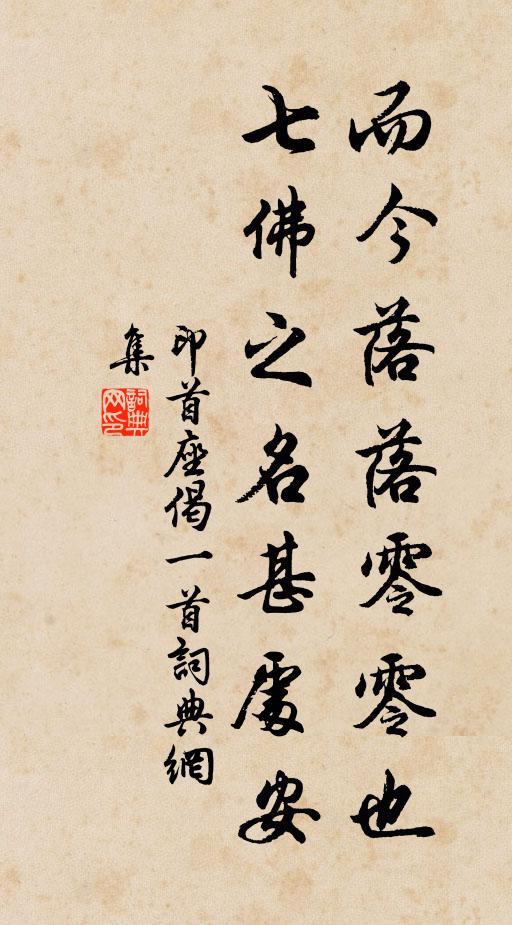 而今落落零零也
七佛之名甚處安
印首座偈一首詞典網
集
詞典
网印